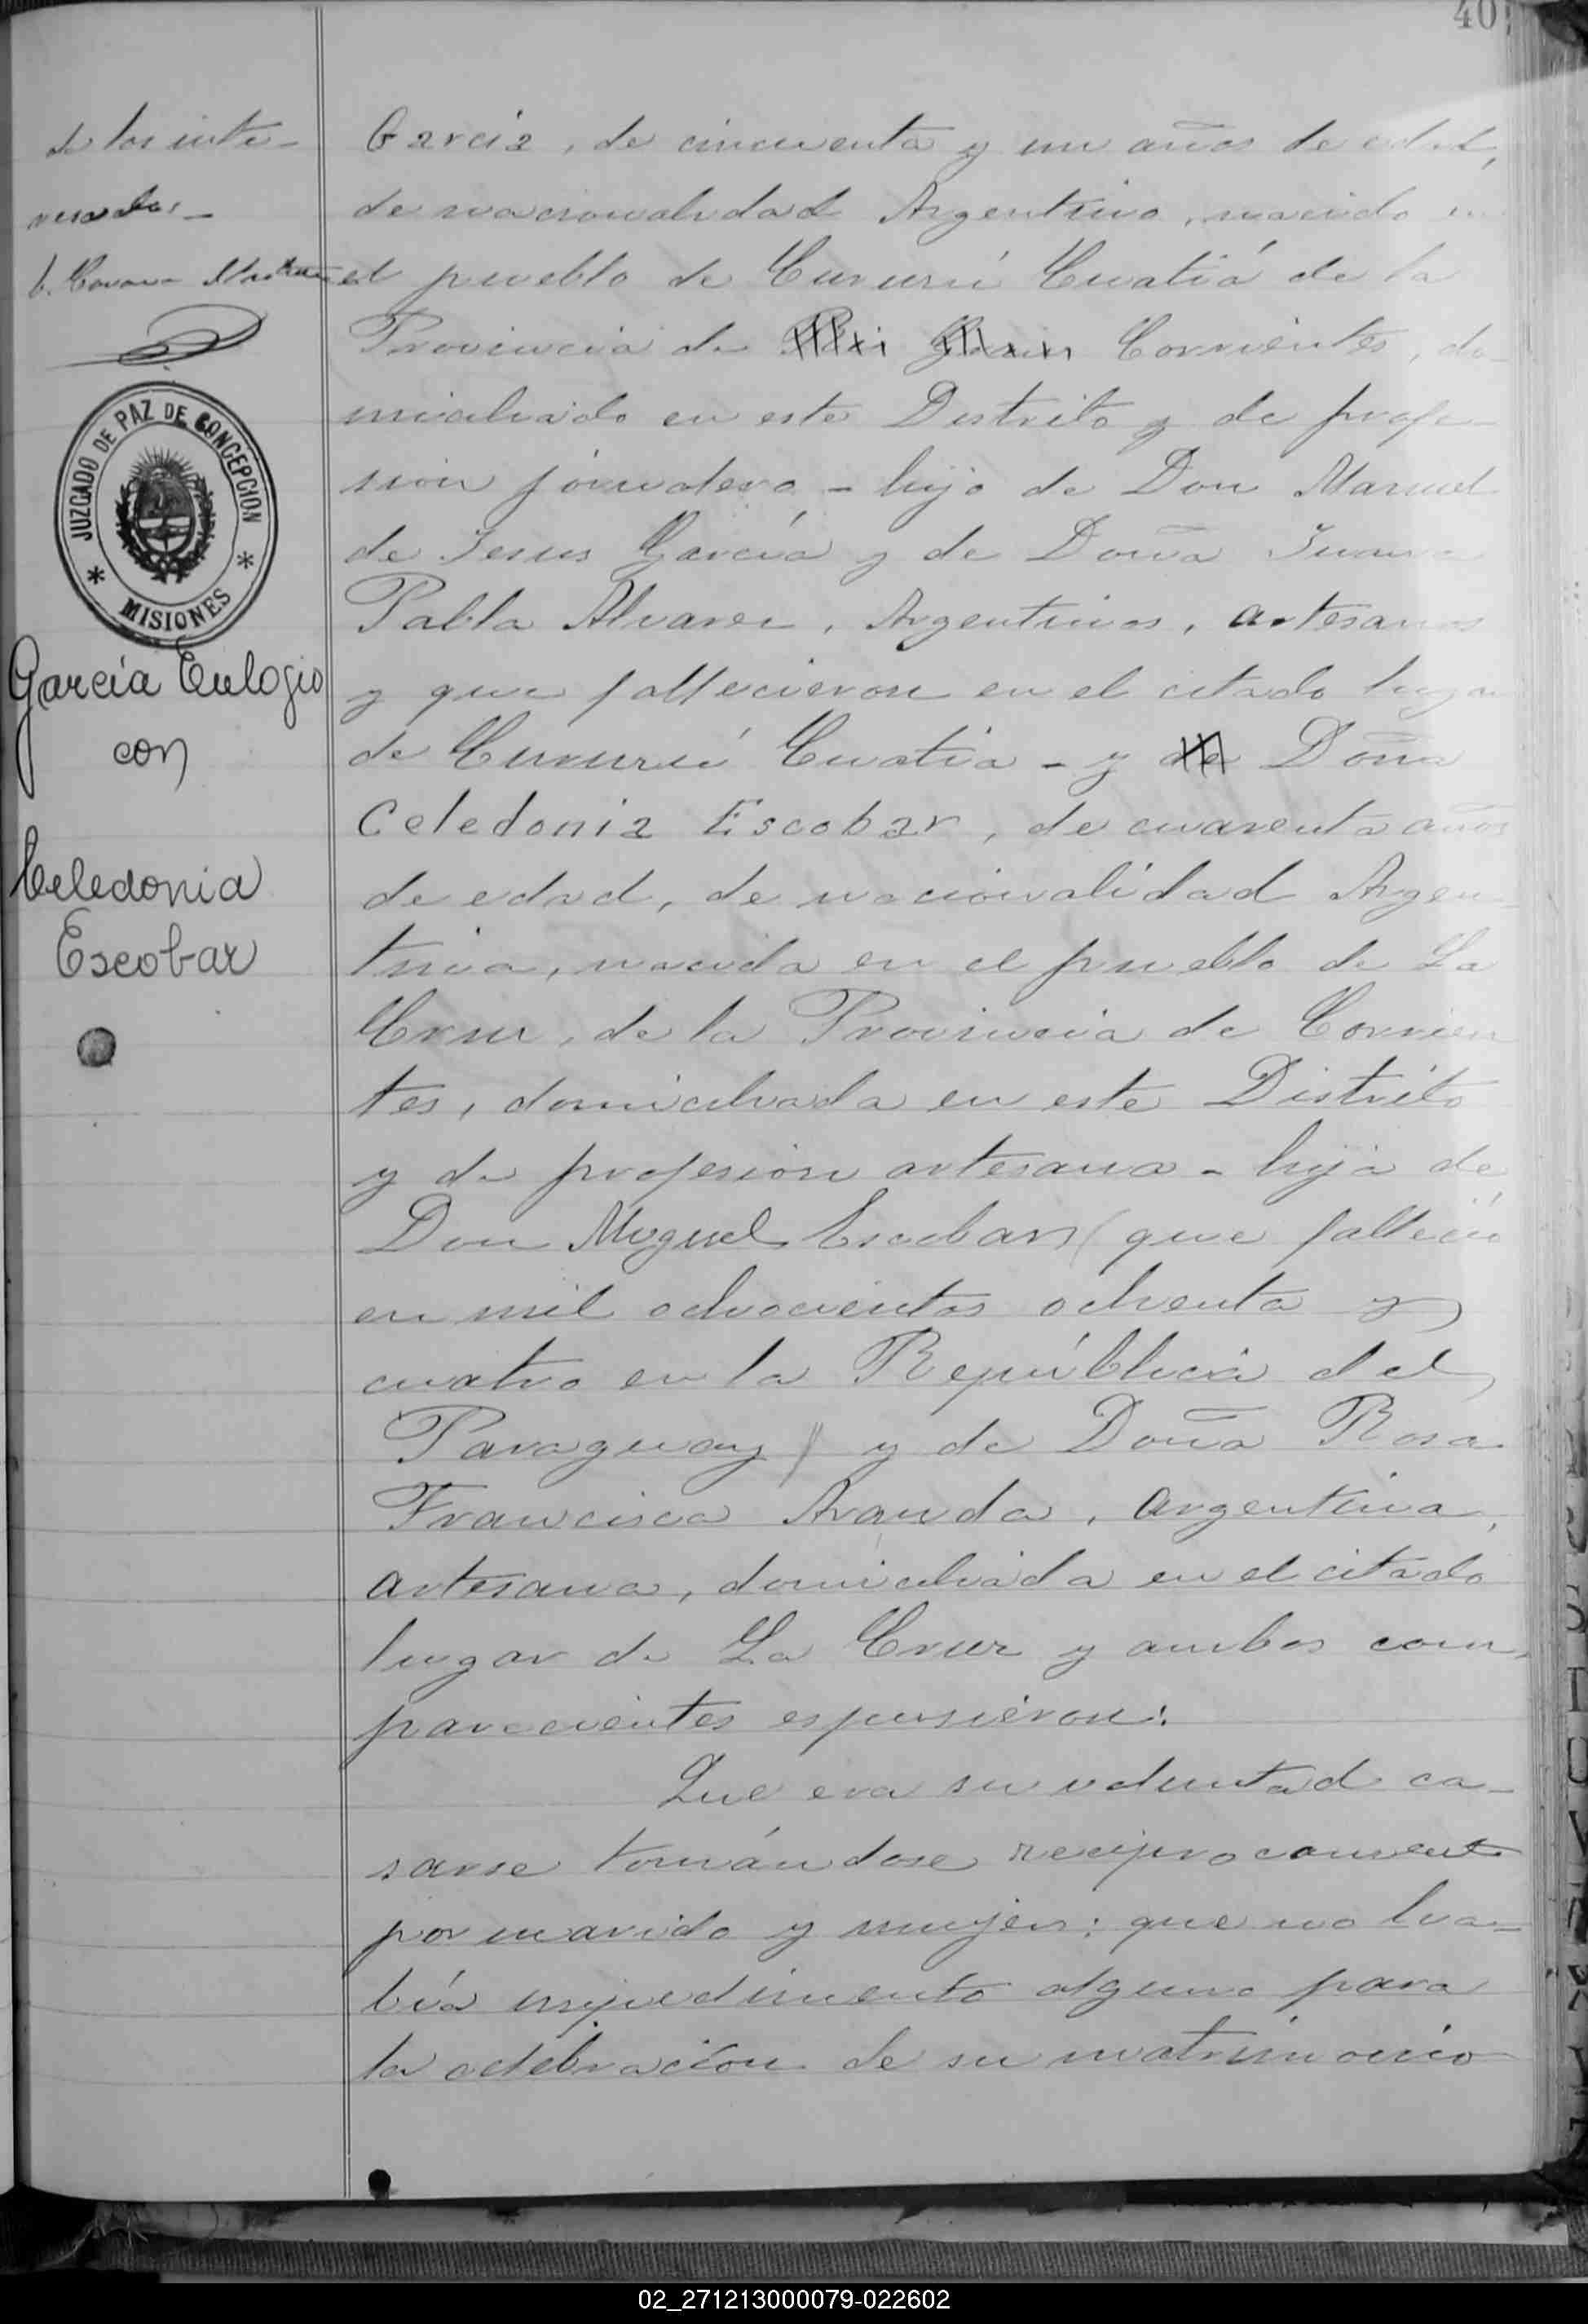 40
de los inte-
resados-
JUZGADO DE PAZ DE CONCEPCION
* MISIONES *
García Eulogio
con
Celedonia
Escobar
García, de cincuenta y un años de edad,
de nacionalidad Argentino, nacido en
el pueblo de Curuzú Cuatiá de la
Provincia de Corrientes, do-
miciliado en este Distrito y de profe-
sion jornalero - hijo de Don Manuel
de Jesus García y de Doña Juana
Pabla Alvarez, Argentinos, artesanos
y que fallecieron en el citado lugar
de Curuzú Cuatia - y de Doña
Celedonia Escobar, de cuarenta años
de edad, de nacionalidad Argen-
tina, nacida en el pueblo de La
Cruz, de la Provincia de Corrien
tes, domiciliada en este Distrito
y de profesion artesana - hija de
Don Miguel Escobar (que falleció
en mil ochocientos ochenta y
cuatro en la República del
Paraguay) y de Doña Rosa
Francisca Aranda, argentina,
artesana, domiciliada en el citado
lugar de La Cruz y ambos com-
parecientes espusieron:
Que era su voluntad ca-
sarse tomándose reciprocamente
por marido y mujer: que no ha-
bía impedimento alguno para
la celebracion de su matrimonio
02_271213000079-022602